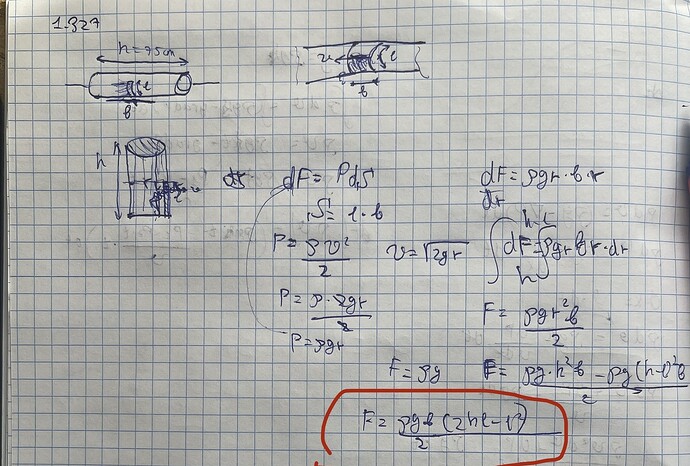 1.327
h = 75cm
l
b
v
l
b
h
v
l
dF = PdS
S = l · b
P = ρv²/2
v = √2gr
P = ρ · 2gr/2
P = ρgr
dF/dr = ρgr · b · r
∫dF = ∫ρgr br · dr
h
F = ρgr²b/2
F = ρg
F = ρg · h²b – ρg(h-l)²b/2
F = ρgb(2hl – l²)/2